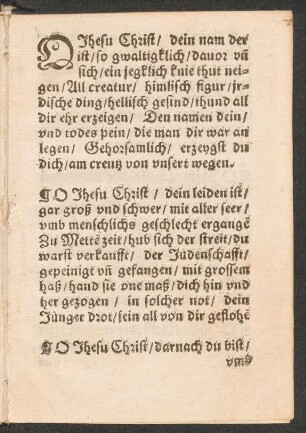 O Jhesu Christ/ dein nam der
ist/ so gwaltigklich/ dauor vñ
sich/ ein jegklich knie thut nei-
gen/ All creatur/ himlisch figur/ jr-
dische ding/ hellisch gesind/ thund all
dir ehr erzeigen/ Den namen dein/
vnd todes pein/ die man dir war an
legen/ Gehorsamlich/ erzeygst du
dich/ am creutz von vnsert wegen.
¶O Jhesu Christ/ dein leiden ist/
gar groß vnd schwer/ mit alter seer/
vmb menschlichs geschlecht ergangē
Zu Mettē zeit/ hub sich der streit/ du
warst verkaufft/ der Judenschafft/
gepeinigt vñ gefangen/ mit grossem
haß/ hand sie one maß/ dich hin vnd
her gezogen/ in solcher not/ dein
Jünger drot/ sein all von dir geflohē
¶O Jhesu Christ/ darnach du bist/
vmb